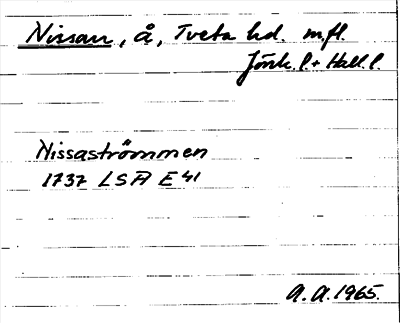 Nissan, å, Tveta hd. m.fl.
Jönk. l. + Hall. l.
Nissaströmmen
1737 LSA E 41
A.A. 1965.